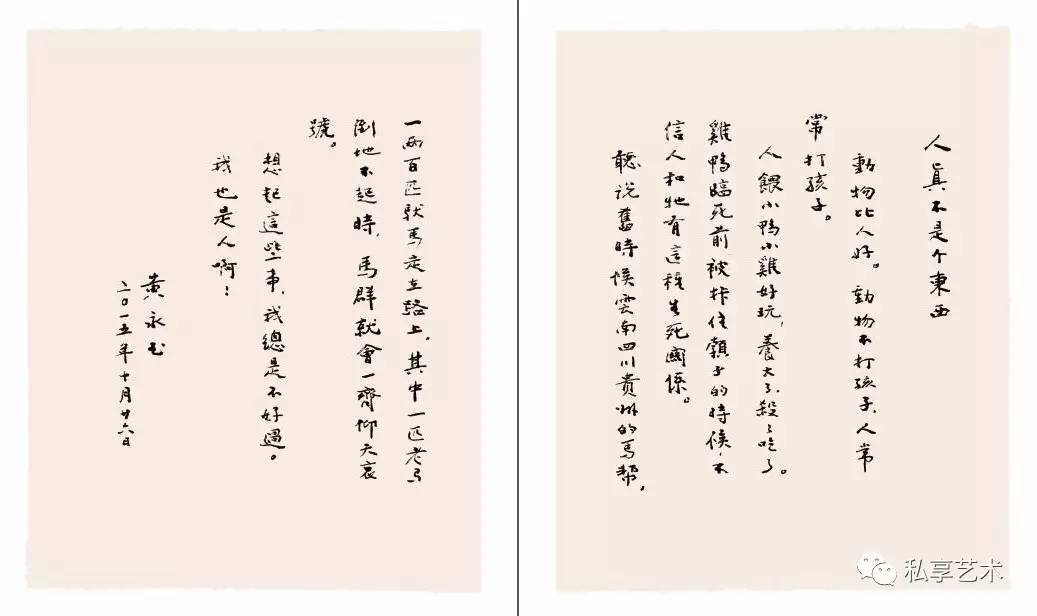 人真不是个東西
動物比人好。動物不打孩子、人常
常打孩子。
人餵小鴨小雞好玩，養大了、殺了吃了。
雞鴨臨死前被拤住頸子的時候，不
信人和牠有這種生死關係。
聽说舊時候雲南四川貴州的馬幫，
一兩百匹馱馬走在路上，其中一匹老馬
倒地不起時，馬群就會一齊仰天哀
號。
想起這些事，我總是不好過。
我也是人啊！
黄永玉
二〇一五年十月廿六日
私享艺术